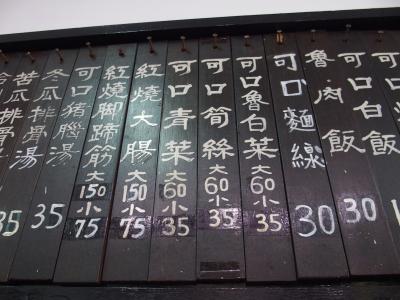 可口白飯
魯肉飯 30
可口麵線 30
可口魯白菜 大60 小35
可口筍絲 大60 小35
可口青菜 大60 小35
紅燒大腸 大150 小75
紅燒腳蹄筋 大150 小75
可口豬腦湯
冬瓜排骨湯 35
苦瓜排骨湯 35